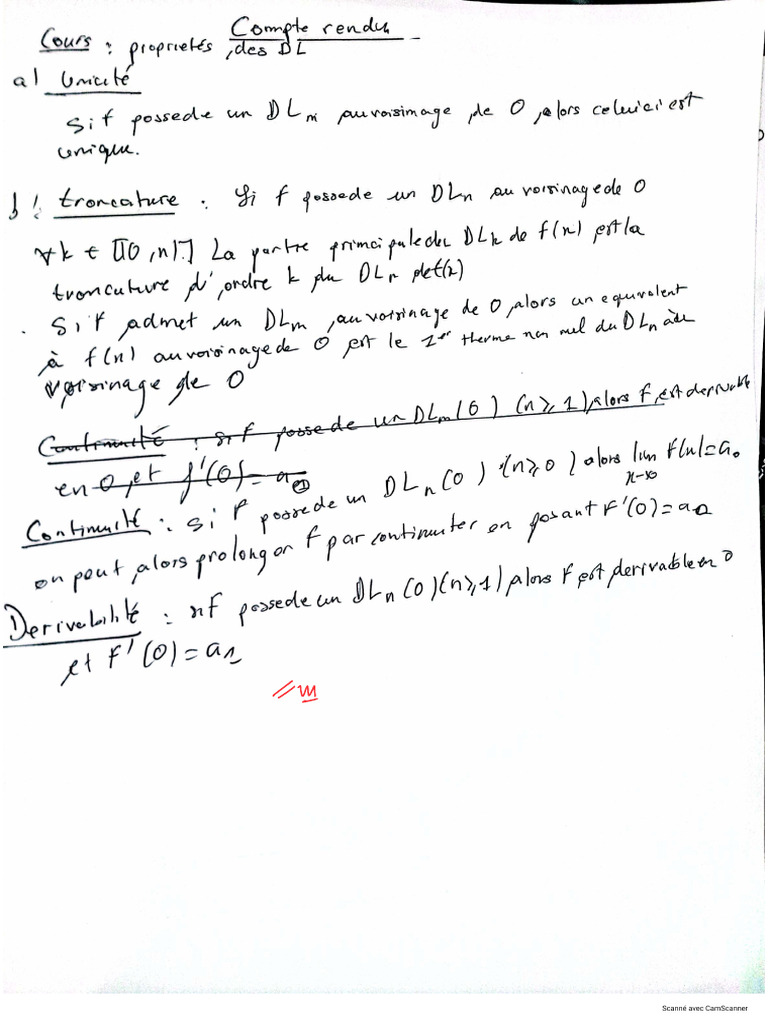 Compte rendu
Cours : proprietés des DL
a) Unicité
Si f possede un DLn au voisinage de 0, alors celui ci est
unique.
b) troncature : Si f possede un DLn au voisinage de 0
∀k ∈ [|0,n|] La partie principale du DLk de f(x) est la
troncature d'ordre k du DLn de f(x)
. Si f admet un DLn au voisinage de 0, alors un equivalent
à f(x) au voisinage de 0 est le 1er therme non nul du DLn
voisinage de 0
Continuité : si f possede un DLn(0) (n≥1) alors f est derivable
en 0 et f'(0)=a
Continuité : Si f possede un DLn(0) (n≥0) alors lim f(x)=a0
x→0
on peut alors prolonger f par continuter en posant F'(0)=a
Derivabilité : f possede un DLn(0)(n≥1) alors f est derivable en 0
et F'(0)=a1